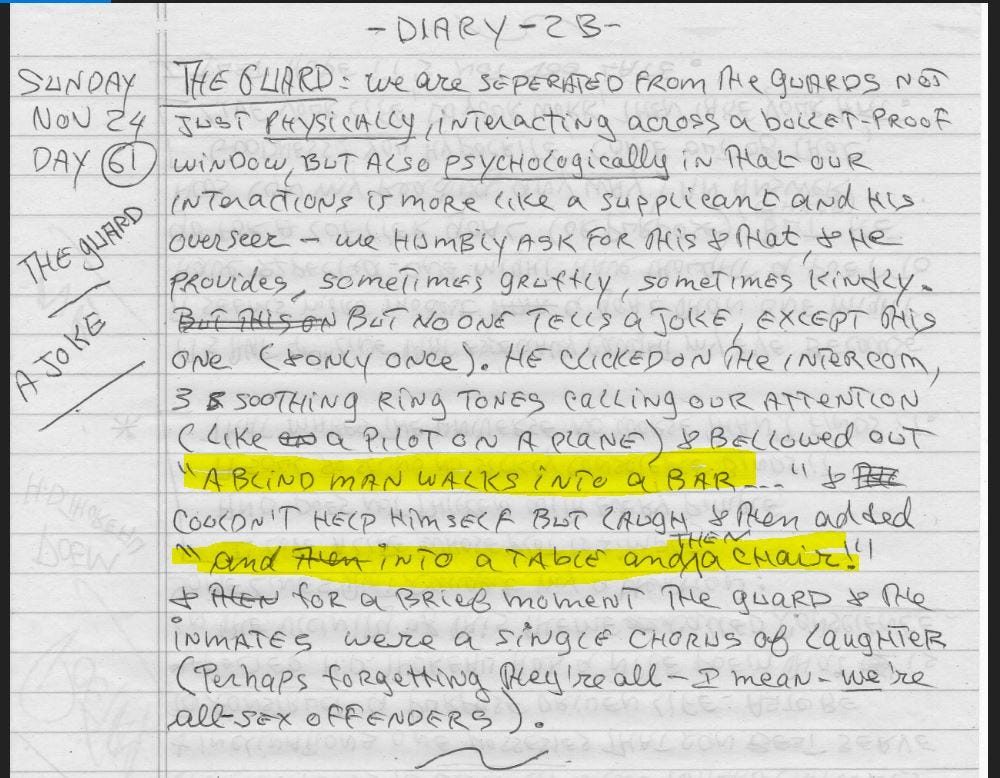 -DIARY-2B-
SUNDAY
NOV 24
DAY 61
THE GUARD
A JOKE
THE GUARD: we are SEPERATED FROM The guARDS NOT
JUST PHYSICALLY, interacting across a bollet-PROOF
window, BUT Also PSYCHOlogically in That OUR
INTERACTIONS is more like a supplicant and His
overseer - we HUMBLY ASK FOR THis & That, & He
PROVIDES, SOMETIMES gruffly, SOMETIMES KINDLY.
BUT THIS ON BUT NO ONE TELLS a JOKE, EXCEPT This
ONE (& ONLY ONCE). HE CLICKED ON The INTERCOM,
3 SOOTHING RING TONES CALLING OUR ATTENTION
(LIKE a PILOT ON A PLANE) & BELLOWED OUT
"A BLIND MAN WALKS INTO a BAR...." &
COULDN'T HELP HIMSELF BUT LAUGH, & Then added
"and then INTO a TABLE and THEN a CHAIR!"
& THEN for a BRIEF moment THE guARD & THE
INMATES were a SINGLE CHORUS of LAUGHTER
(Perhaps forgetting They're all - I mean - we're
all - SEX OFFENDERS).
*